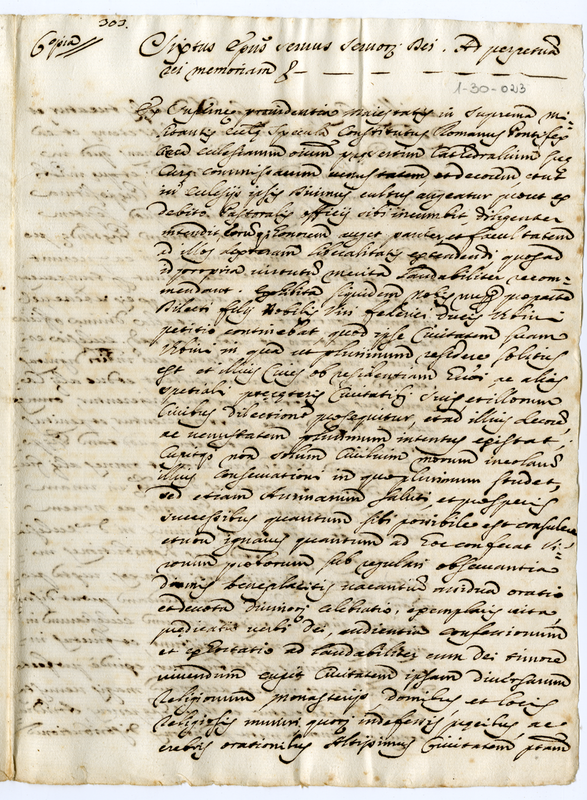 303.
Copia
Sixtus Epūs servus servorz Dei. Ad perpetuā
rei memoriam
1-30-023
Ex Supernæ providentia maiestatis in suprema mi=
litantis Ecclę specula Constitutus Romanus Pontifex
Ecclesiarum oīum præsertim Cathedralium suę
Curę commissarum venustatem et decorem, et ut
in Ecclesijs ipsis Divinus cultus augeatur prout ex
debito Pastoralis officij sibi incumbit diligenter
intendit, honorem auget pariter et facultatem
ad illos Apostolicam liberalitatis extendendi quos ad
id propria virtutum merita laudabiliter recom=
mendant. Exhibita siquidem nobis nuper pro parte
Dilecti filij Nobilis Viri Federici Ducis Urbini
petitio continebat quod ipse Civitatem suam
Urbini in qua ut plurimum residere solitus
est et illius Cives ob residentiam huiōi ac alias
speciali præ cęteris Civitatibz suis, et illorum
Civibus dilectione prosequitur, et ad illius decorē
ac venustatem plurimum intentus existat,
Cupitqz non solum Civibuum morum incolarū
illius conservationi in quo plurimum studet,
sed etiam Animarum saluti, et prosperis
successibus quantum sibi possibile est consulere
et non ignarus quantum ad hoc conferat Vi=
rorum proborum sub regulari observantia
divinis beneplacitis vacantiū assidua oratio
et devota divinorz celebratio, exemplaris vita
predicatio verbi Dei, audientia confessionum
et exhortatio ad laudabiliter cum Dei timore
vivendum cupit Civitatem ipsam diversarum
Religionum monasterijs, domibus et locis
Religiosis muniri quorz indefessis precibus ac
crebris orationibus Altissimus Civitatem ptam